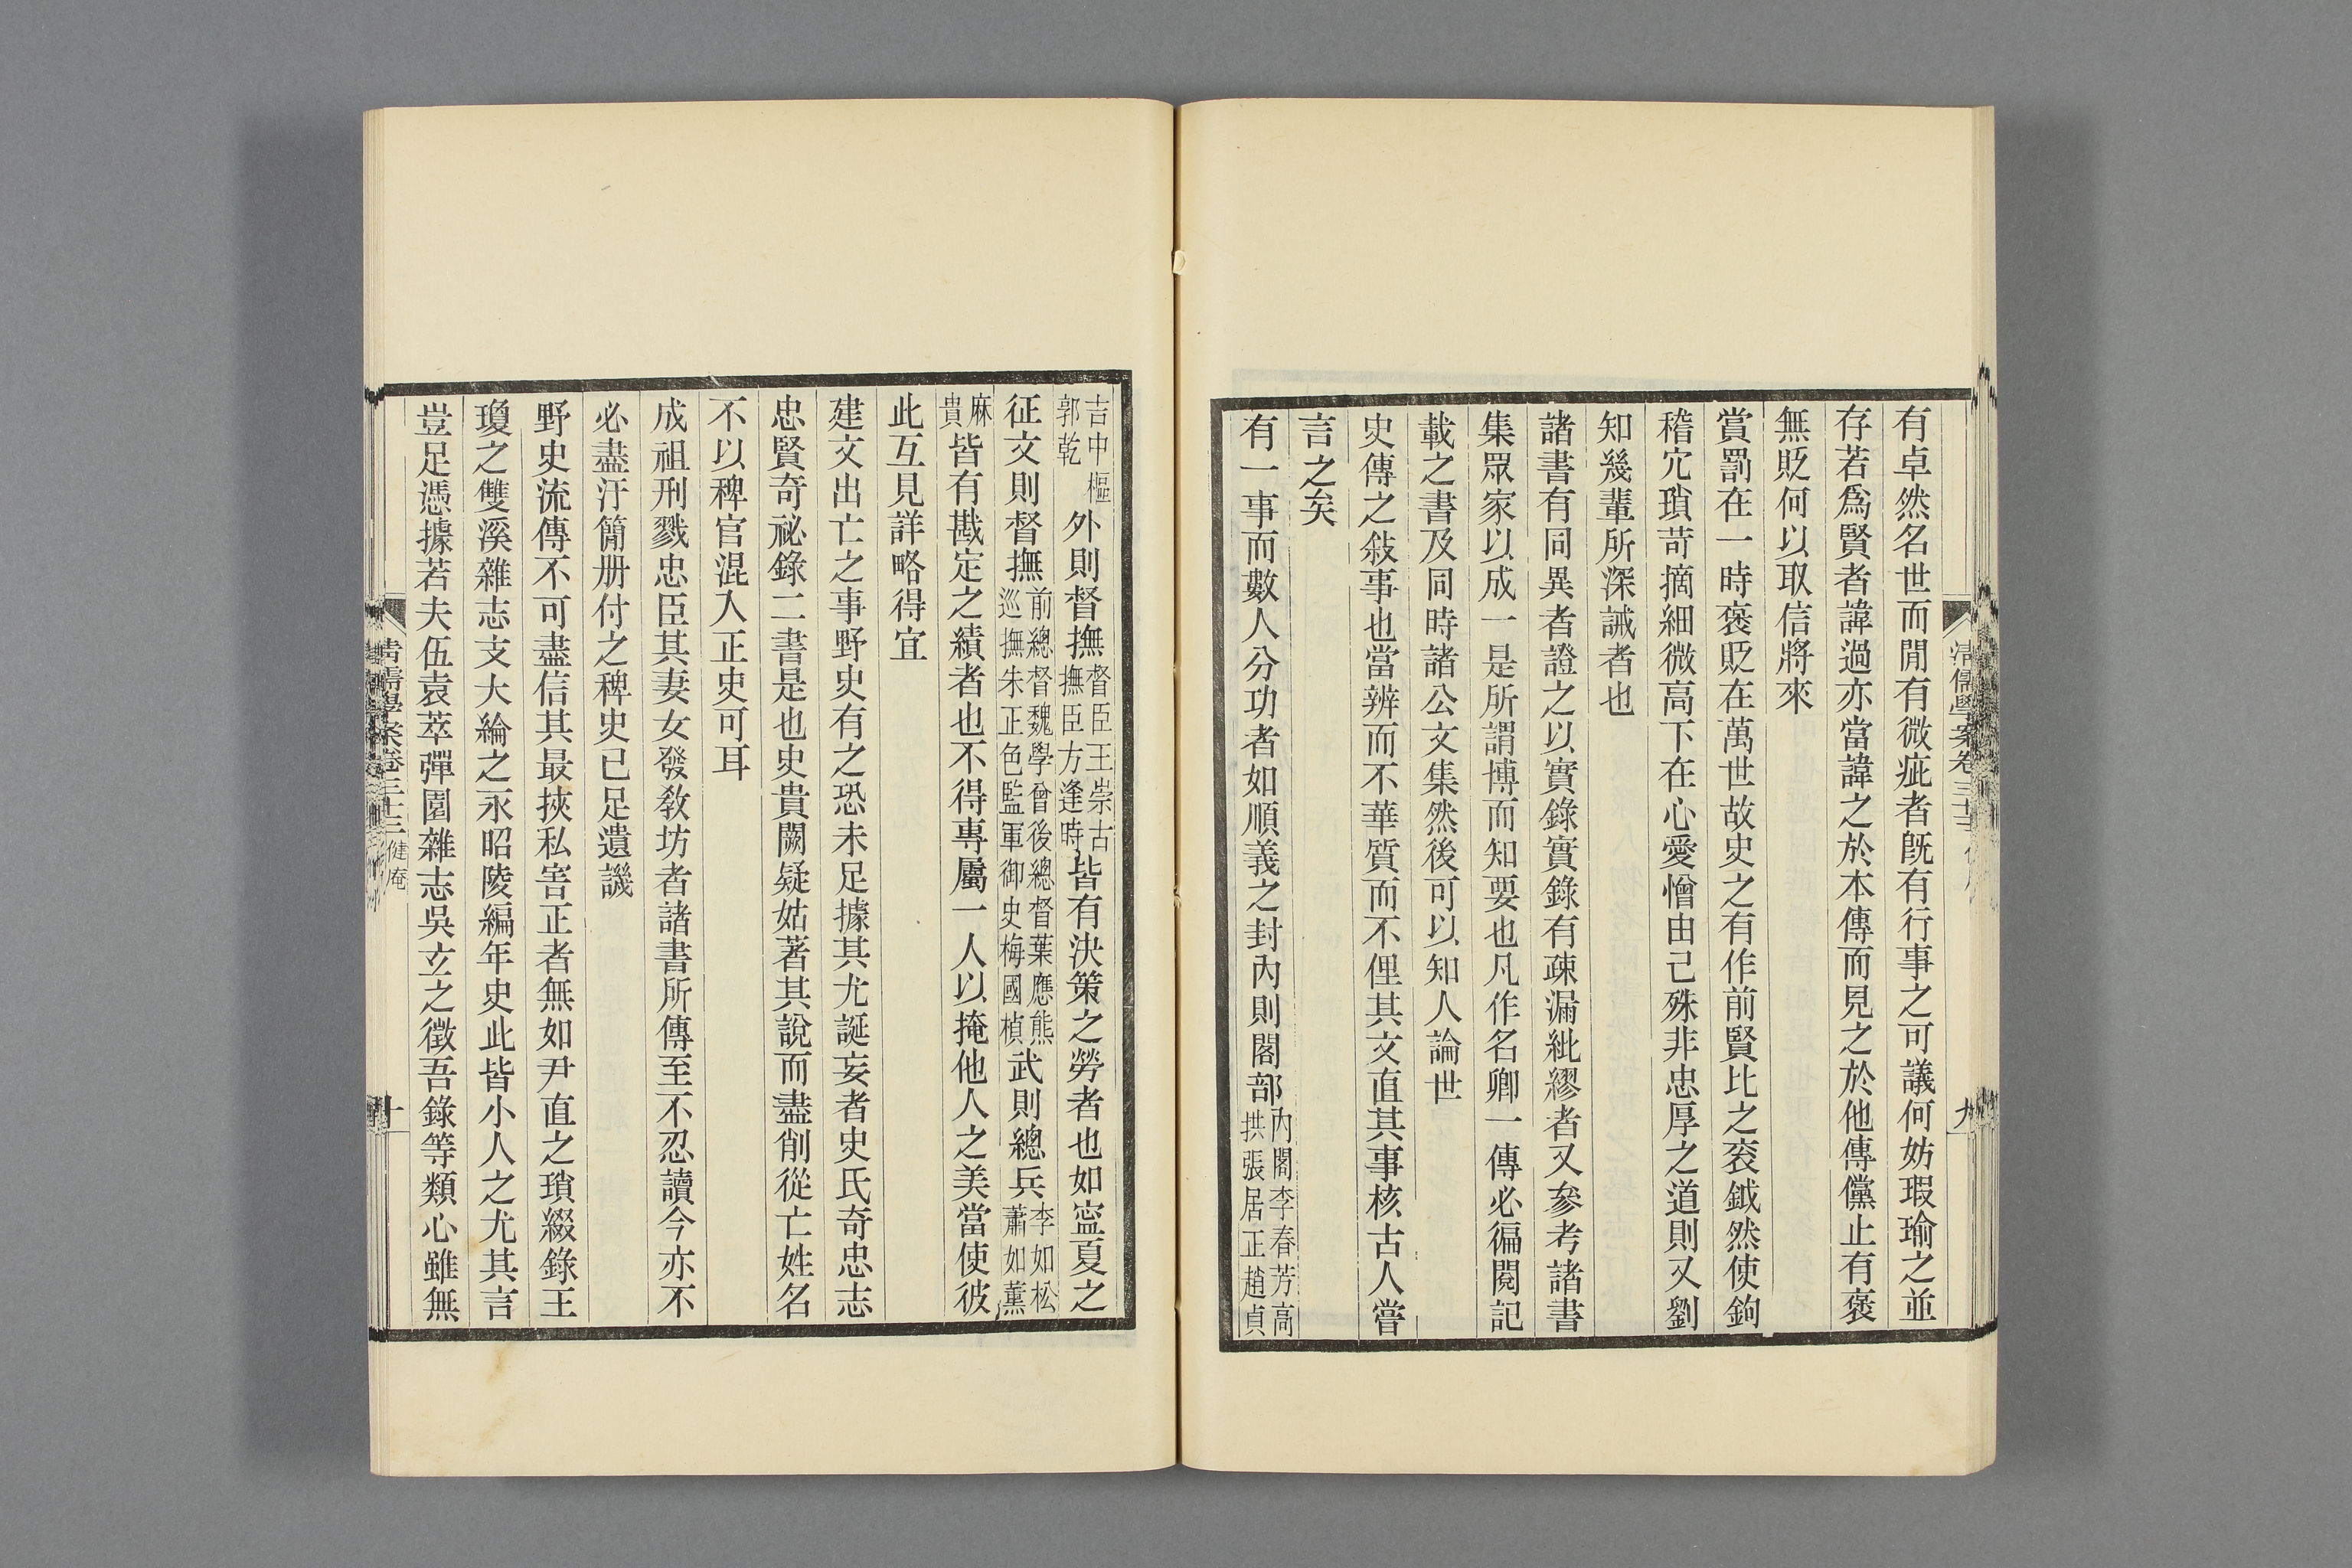 清儒學案卷三十三
九
有卓然名世而閒有微疵者旣有行事之可議何妨瑕瑜之並
存若爲賢者諱過亦當諱之於本傳而見之於他傳儻止有褒
無貶何以取信將來
賞罰在一時褒貶在萬世故史之有作前賢比之袞鉞然使鉤
稽宂瑣苛摘細微高下在心愛憎由己殊非忠厚之道則又劉
知幾輩所深誡者也
諸書有同異者證之以實錄實錄有疎漏紕繆者又參考諸書
集眾家以成一是所謂博而知要也凡作名卿一傳必徧閱記
載之書及同時諸公文集然後可以知人論世
史傳之敍事也當辨而不華質而不俚其文直其事核古人嘗
言之矣
有一事而數人分功者如順義之封內則閣部內閣李春芳高拱張居正趙貞
吉中樞郭乾外則督撫督臣王崇古撫臣方逢時皆有決策之勞者也如寍夏之
征文則督撫前總督魏學曾後總督葉應熊巡撫朱正色監軍御史梅國楨武則總兵李如松蕭如薰
麻貴皆有戡定之績者也不得專屬一人以掩他人之美當使彼
此互見詳略得宜
建文出亡之事野史有之恐未足據其尤誕妄者史氏奇忠志
忠賢奇祕錄二書是也史貴闕疑姑著其說而盡削從亡姓名
不以稗官混入正史可耳
成祖刑戮忠臣其妻女發敎坊者諸書所傳至不忍讀今亦不
必盡汙簡册付之稗史已足遺譏
野史流傳不可盡信其最挾私害正者無如尹直之瑣綴錄王
瓊之雙溪雜志支大綸之永昭陵編年史此皆小人之尤其言
豈足憑據若夫伍袁萃彈園雜志吳玄之徵吾錄等類心雖無
清儒學案卷三十三 健庵
十